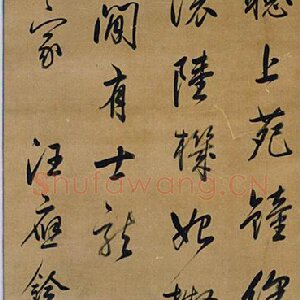 聽上苑鐘
浪陸機始
閒有士龍
家 汪應銓
Shufawang.CN